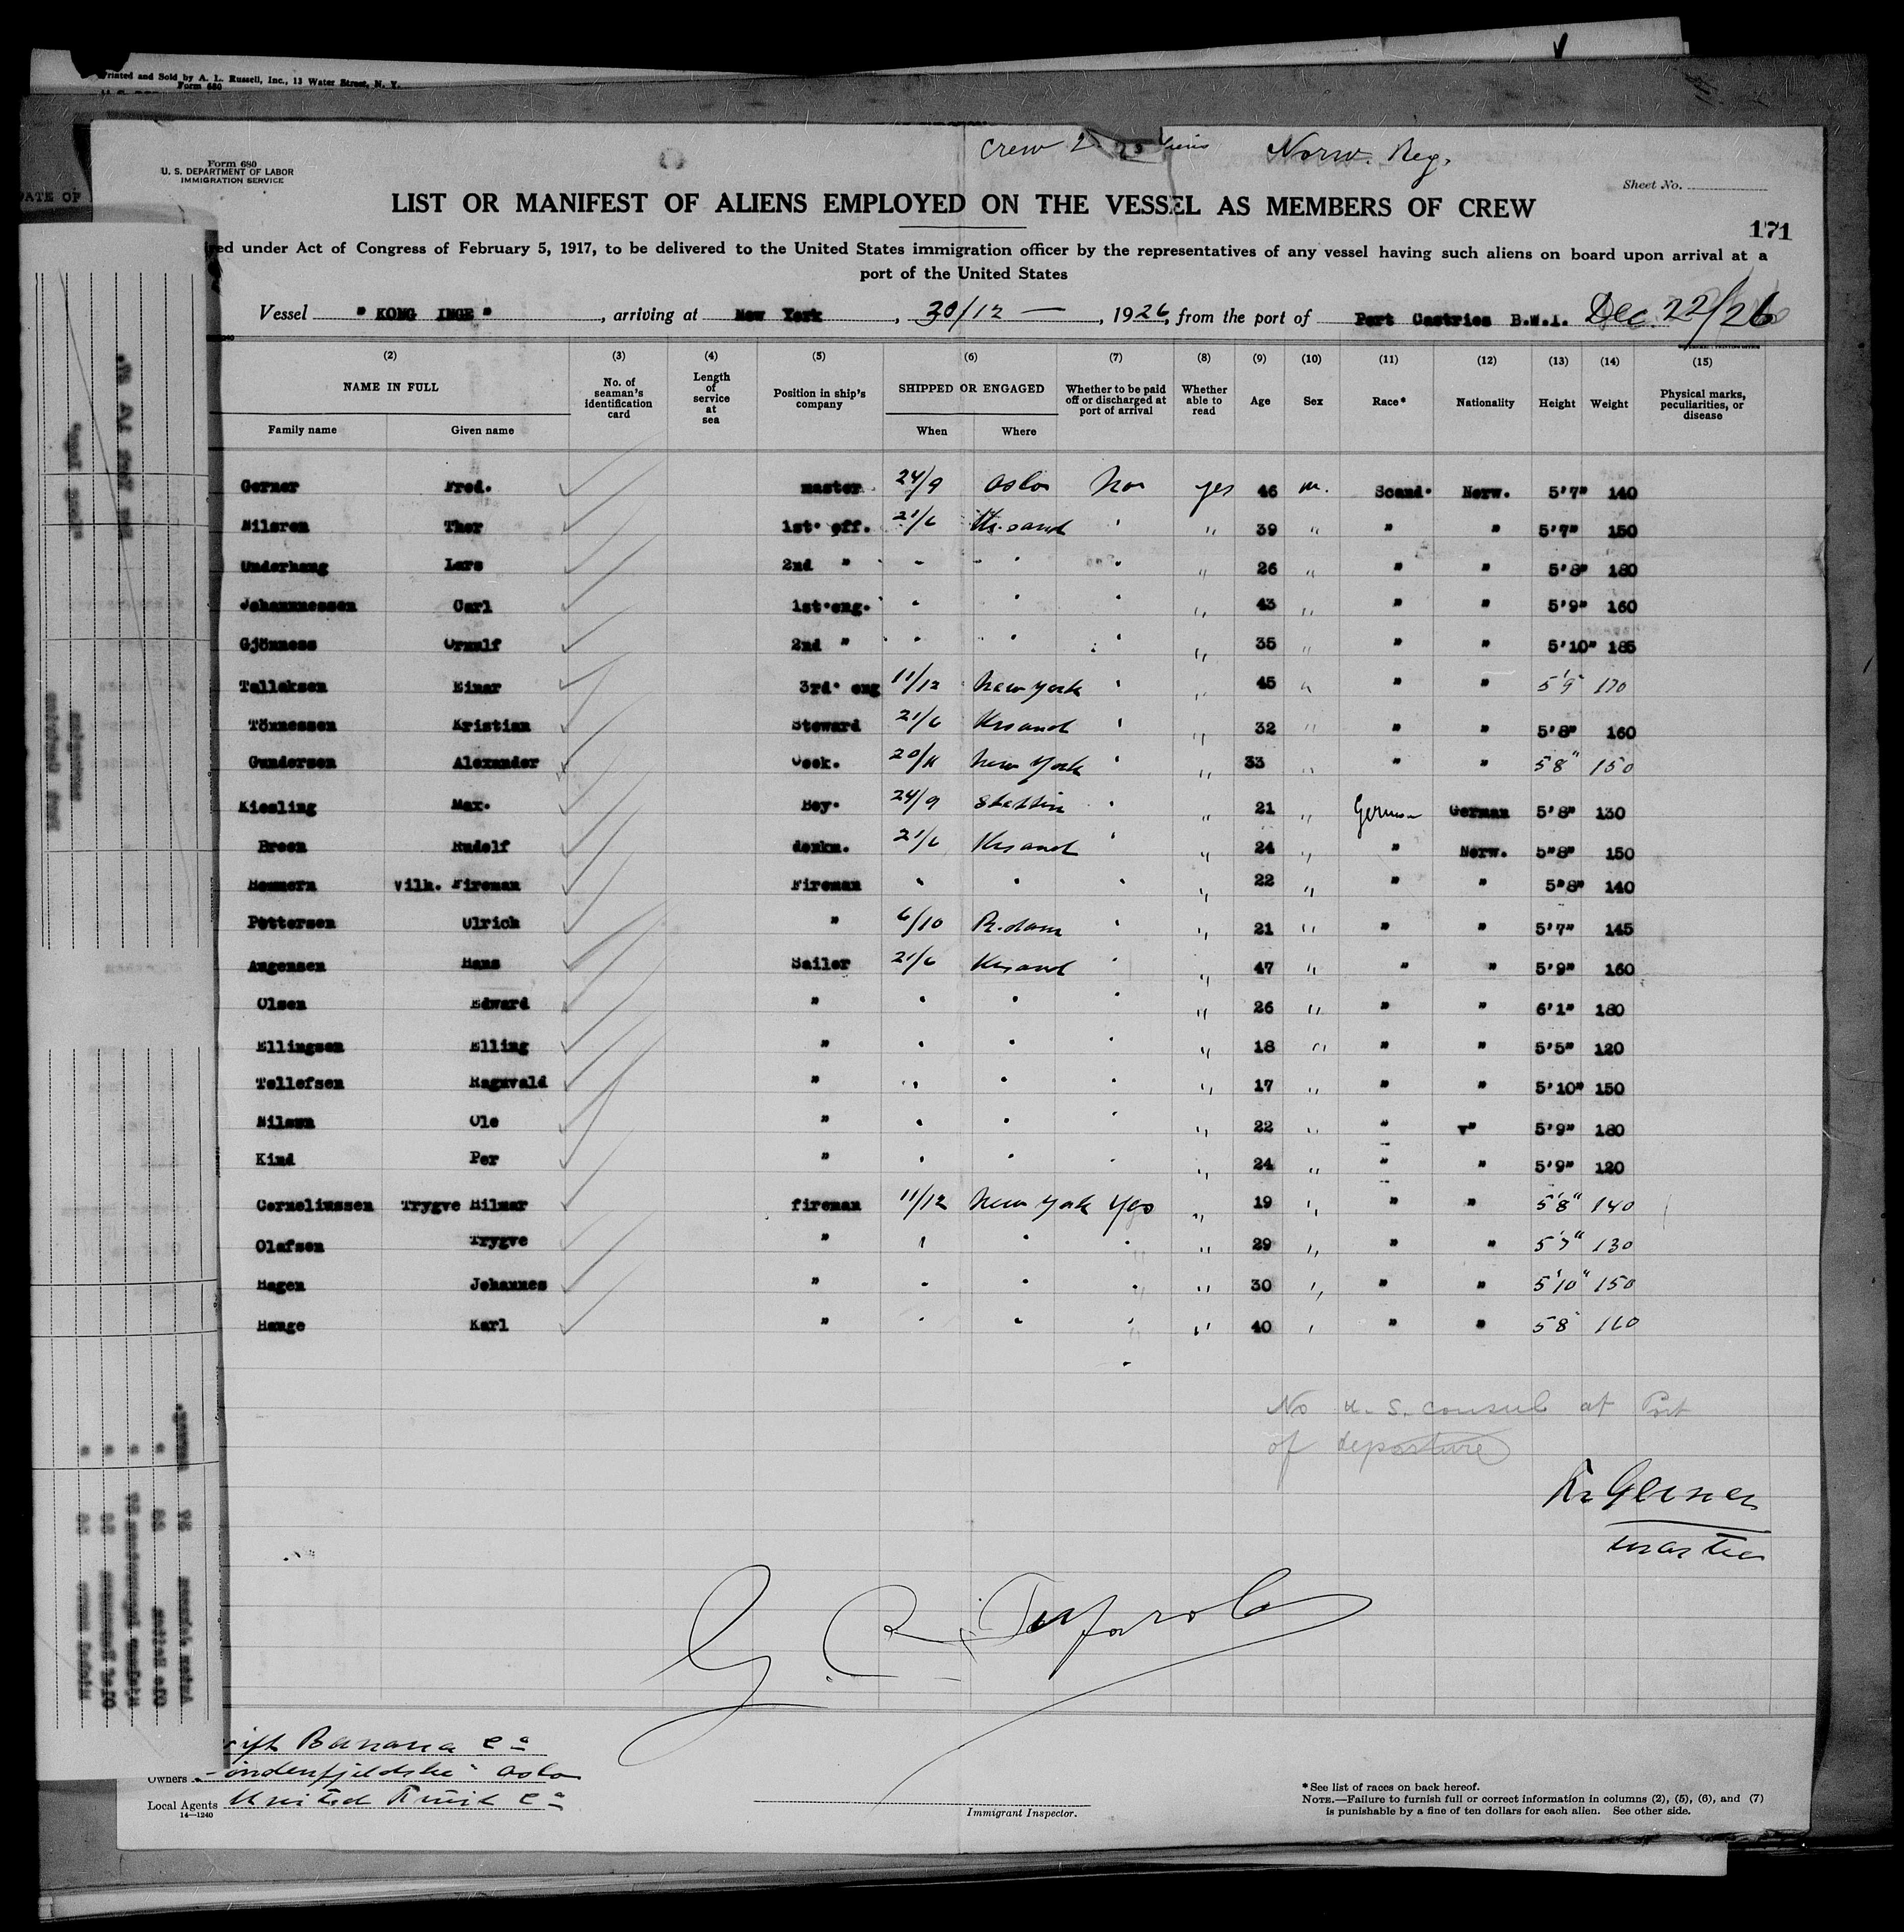 Printed and Sold by A. L. Russell, Inc., 13 Water Street, N. Y.
Form 680
Crew Norw. Reg.
Form 680
U. S. DEPARTMENT OF LABOR
IMMIGRATION SERVICE
Sheet No.
LIST OR MANIFEST OF ALIENS EMPLOYED ON THE VESSEL AS MEMBERS OF CREW
171
under Act of Congress of February 5, 1917, to be delivered to the United States immigration officer by the representatives of any vessel having such aliens on board upon arrival at a
port of the United States
Vessel " KONG INGE ", arriving at New York, 30/12 — , 1926, from the port of Port Castries B.W.I. Dec. 22/26
(2) (3) (4) (5) (6) (7) (8) (9) (10) (11) (12) (13) (14) (15)
NAME IN FULL No. of seaman's identification card Length of service at sea Position in ship's company SHIPPED OR ENGAGED Whether to be paid off or discharged at port of arrival Whether able to read Age Sex Race* Nationality Height Weight Physical marks, peculiarities, or disease
Family name Given name When Where
Gerner Fred. master 24/9 Oslo No yes 46 m. Scand. Norw. 5'7" 140
Nilsren Thor 1st. off. 21/6 Kr.sand ' " 39 " " " 5'7" 150
Underhaug Lars 2nd " " 26 " " " 5'8" 180
Johannnessen Carl 1st.eng. " 43 " " " 5'9" 160
Gjönness Ornulf 2nd " " 35 " " " 5'10" 185
Tallaksen Einar 3rd. eng 11/12 New York ' " 45 " " " 5'9" 170
Tönnessen Kristian Steward 21/6 Krsand ' " 32 " " " 5'8" 160
Gundersen Alexander Cook. New York ' " 33 " " " 5'8" 150
Kiesling Max. Boy. 24/9 Stettin ' " 21 " German German 5'8" 130
Breen Rudolf donkm. 21/6 Krsand ' " 24 " " Norw. 5"8" 150
Hemmern Vilh. Fireman Fireman " 22 " " " 5"8" 140
Pettersen Ulrich " 6/10 R.dam ' " 21 " " " 5'7" 145
Augensen Hans Sailor 21/6 Krsand ' " 47 " " " 5'9" 160
Olsen Edward " " 26 " " " 6'1" 180
Ellingsen Elling " " 18 " " " 5'5" 120
Tellefsen Ragnvald " " 17 " " " 5'10" 150
Nilsen Ole " " 22 " " " 5'9" 180
Kind Per " " 24 " " " 5'9" 120
Corneliussen Trygve Hilmar fireman 11/12 New York Yes " 19 " " " 5'8" 140
Olafsen Trygve " " 29 " " " 5'7" 130
Hagen Johannes " " 30 " " " 5'10" 150
Hauge Karl " " 40 " " " 5'8
No U. S. consul at Port
of departure
Fr Gerner
master
Banana Co
Owners Oslo
Local Agents United Fruit Co
14—1240
Immigrant Inspector.
*See list of races on back hereof.
NOTE.—Failure to furnish full or correct information in columns (2), (5), (6), and (7)
is punishable by a fine of ten dollars for each alien. See other side.